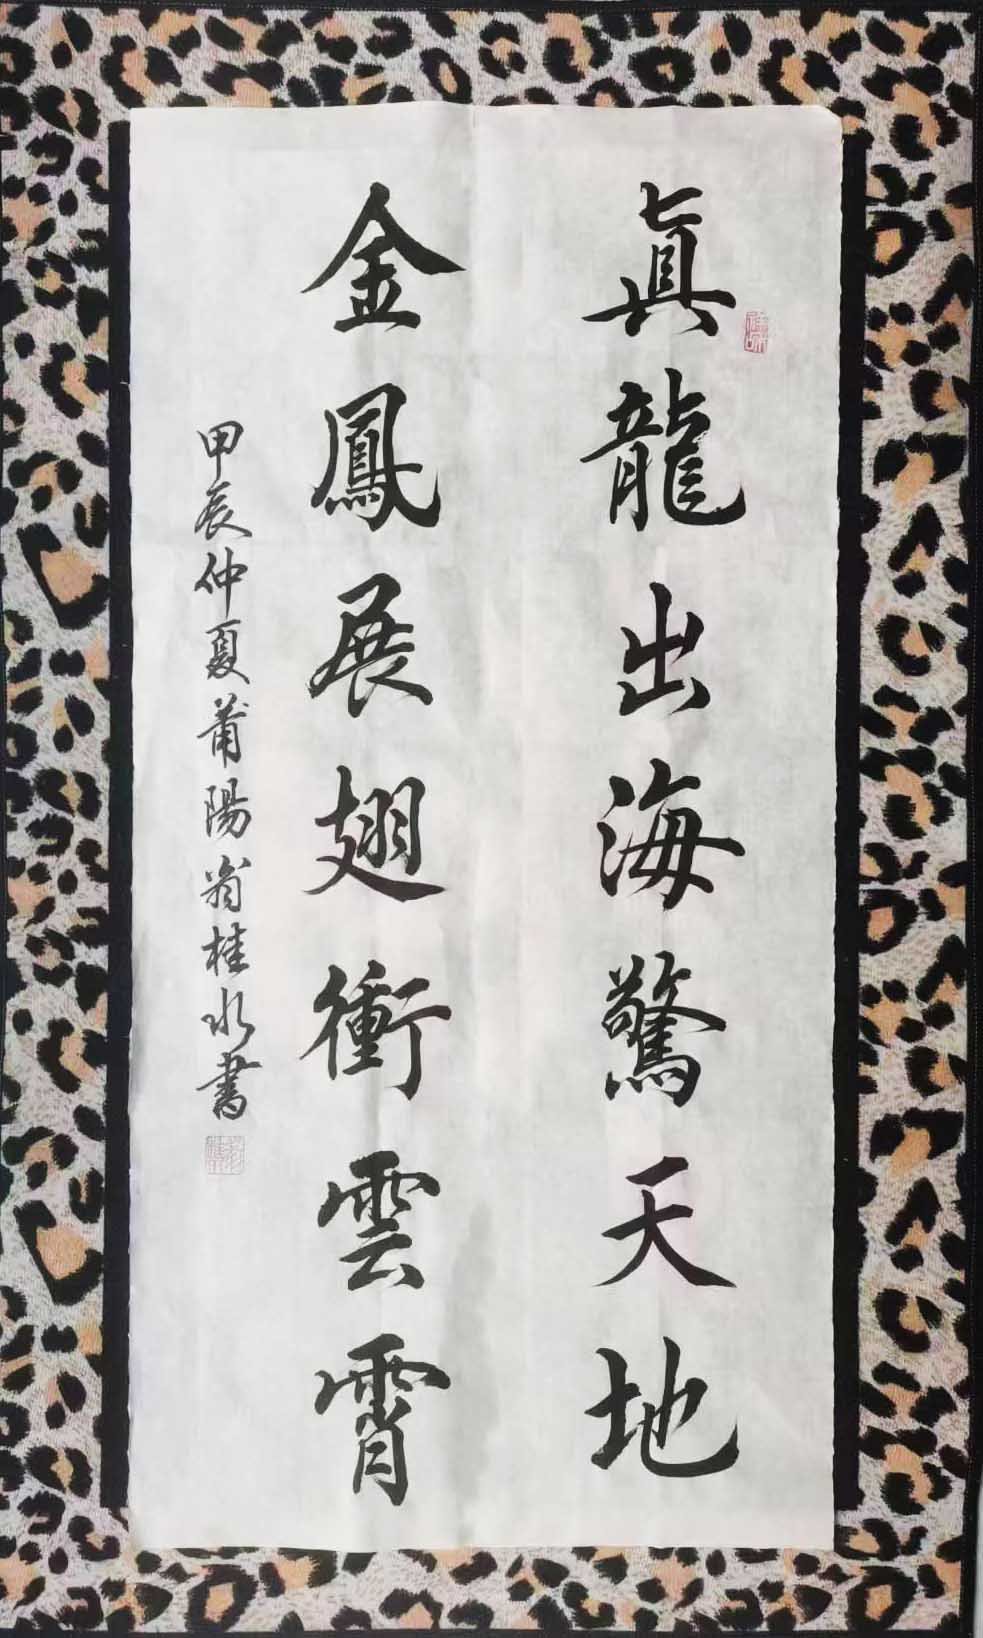 真龍出海驚天地
金鳳展翅衝雲霄
甲辰仲夏莆陽翁桂水書